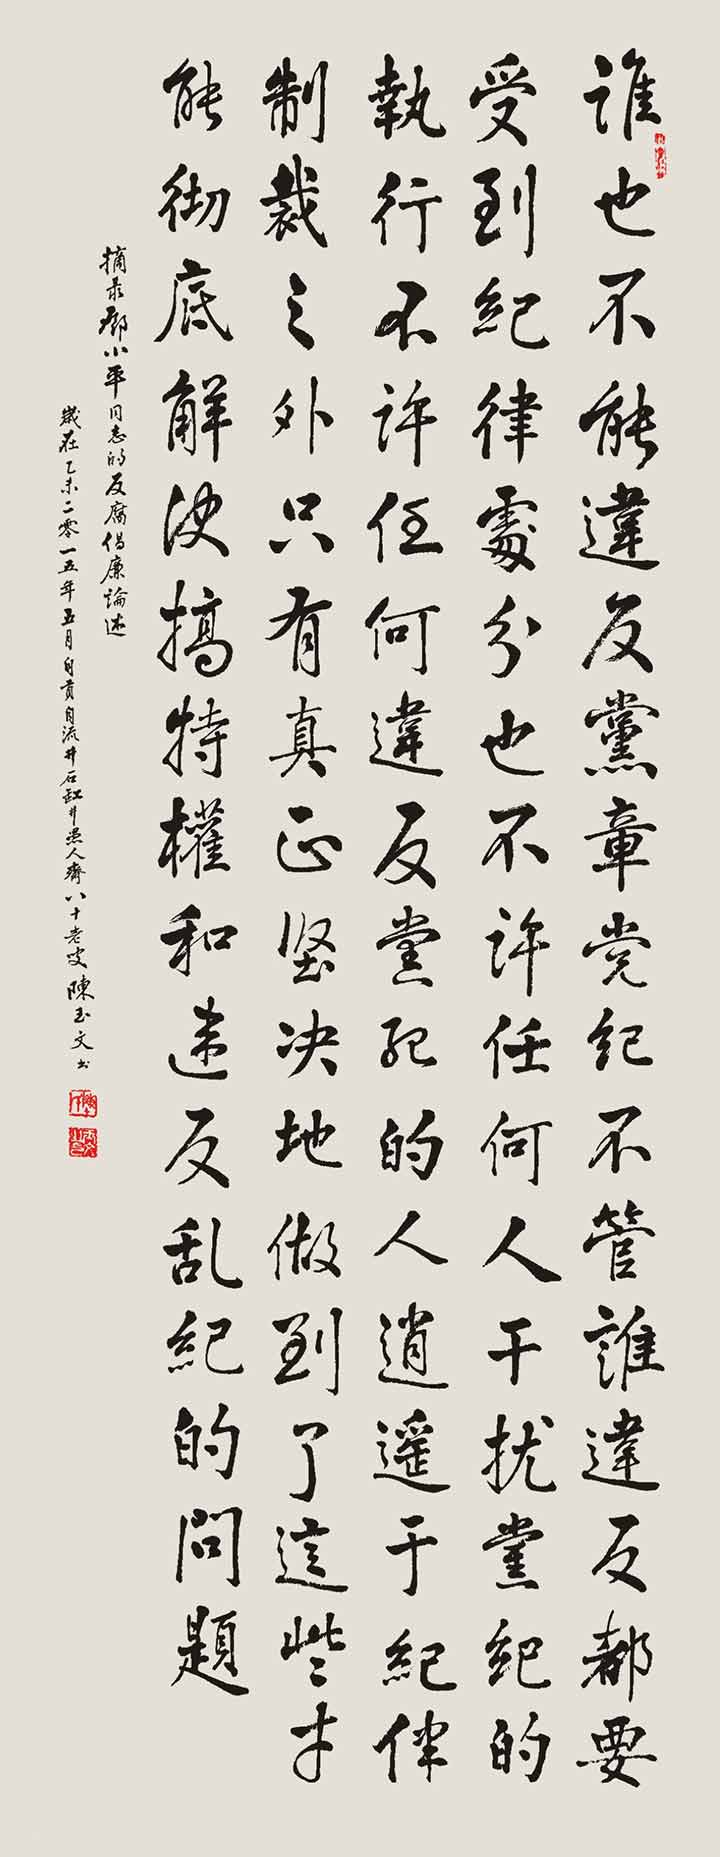 誰也不能違反黨章党纪不管誰違反都要
受到紀律處分也不許任何人干扰黨紀的
執行不許任何違反党纪的人逍遥于紀律
制裁之外只有真正坚决地做到了這些才
能彻底解决搞特權和违反乱紀的問題
摘录鄧小平同志的反腐倡廉論述
歲在乙未二零一五年五月自貢自流井石缸井愚人齋八十老叟陳玉文书